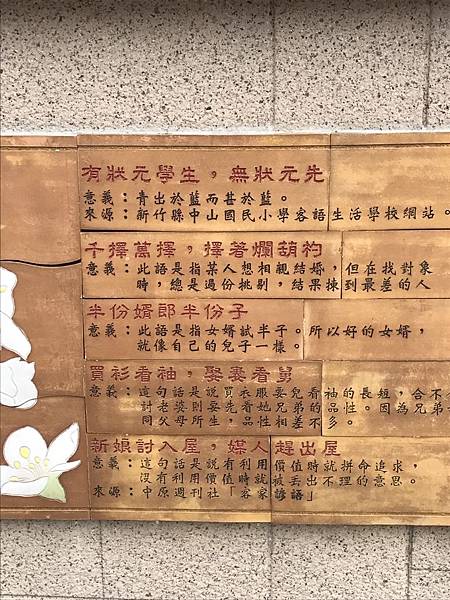 有狀元學生，無狀元先
意義：青出於藍而甚於藍。
來源：新竹縣中山國民小學客語生活學校網站。
千擇萬擇，擇著爛葫杓
意義：此語是指某人想相親結婚，但在找對象
時，總是過份挑剔，結果揀到最差的人
半份婿郎半份子
意義：此語是指女婿試半子。所以好的女婿，
就像自己的兒子一樣。
買衫看袖，娶妻看舅
意義：這句話是說買衣服要先看袖的長短，合不
討老婆則要先看她兄弟的品性。因為兄弟
同父母所生，品性相差不多。
新娘討入屋，媒人趕出屋
意義：這句話是說有利用價值時就拼命追求，
沒有利用價值時就被丟出不理的意思。
來源：中原週刊社「客家諺語」